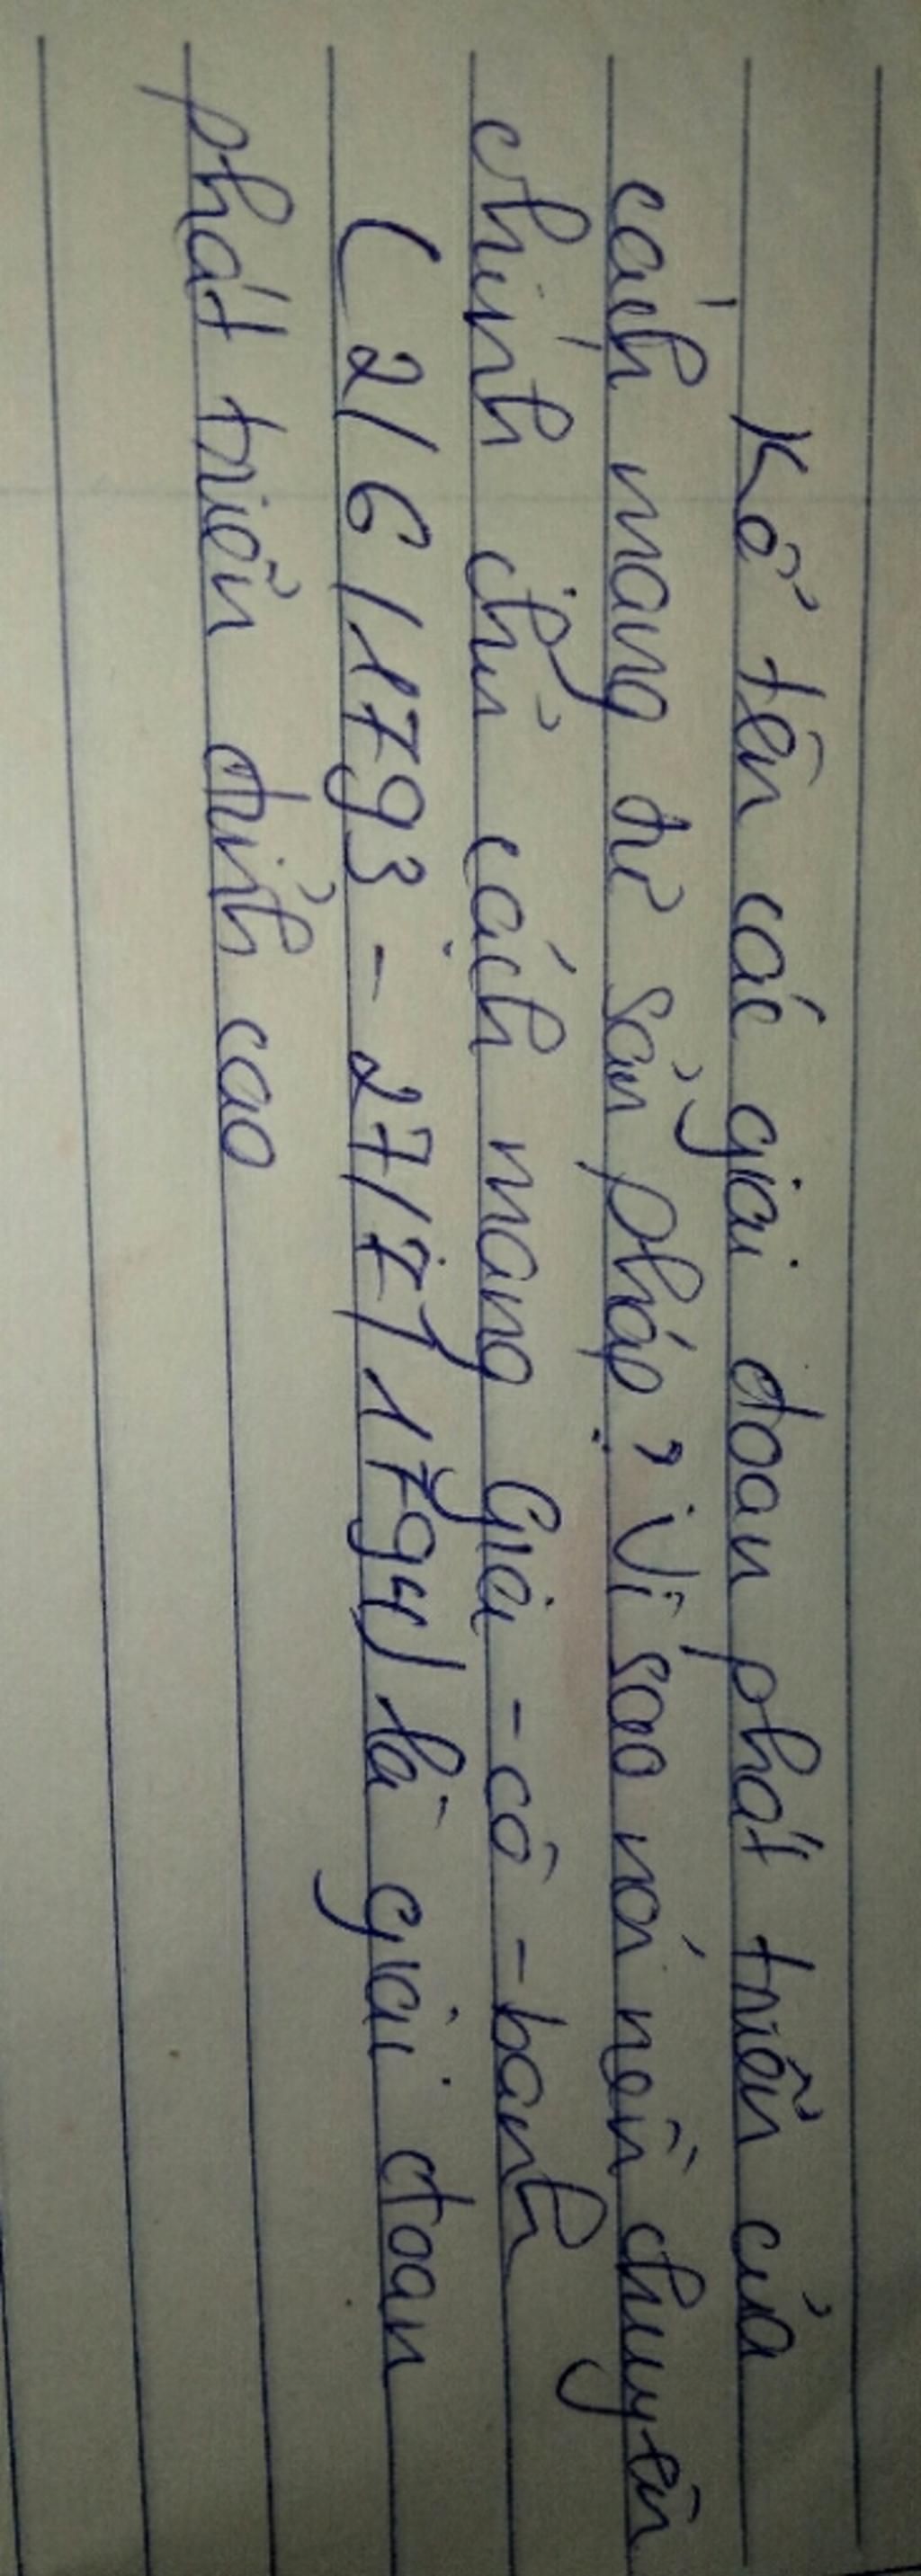 Kể tên các giai đoạn phát triển của
cách mạng tư sản pháp? Vì sao nói nền chuyên
chính chủ cách mạng Gia-cô-banh
(2/6/1793 - 27/7/1794) là giai đoạn
phát triển đỉnh cao